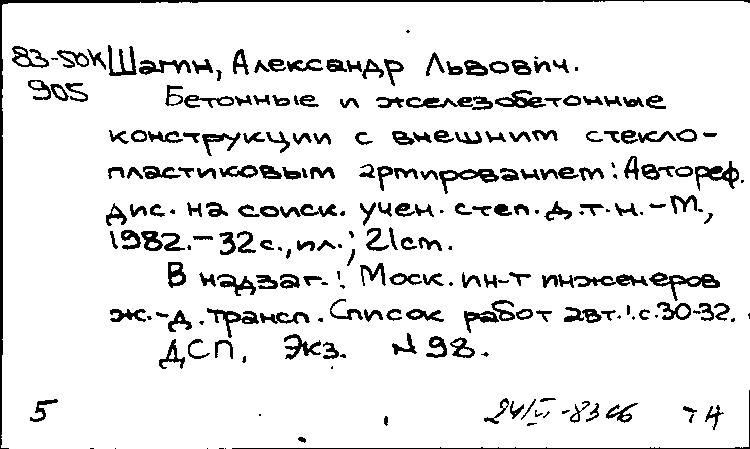 83-50К Шагин, Александр Львович.
905 Бетонные и железобетонные
конструкции с внешним стекло-
пластиковым армированием: Автореф.
дис. на соиск. учен. степ. д.т.н. - М.,
1982. - 32 с., ил.; 21 см.
В надзаг.: Моск. ин-т инженеров
ж.-д. трансп. Список работ авт.: с. 30-32.
ДСП. Экз. N 98.
5 24/VI-83